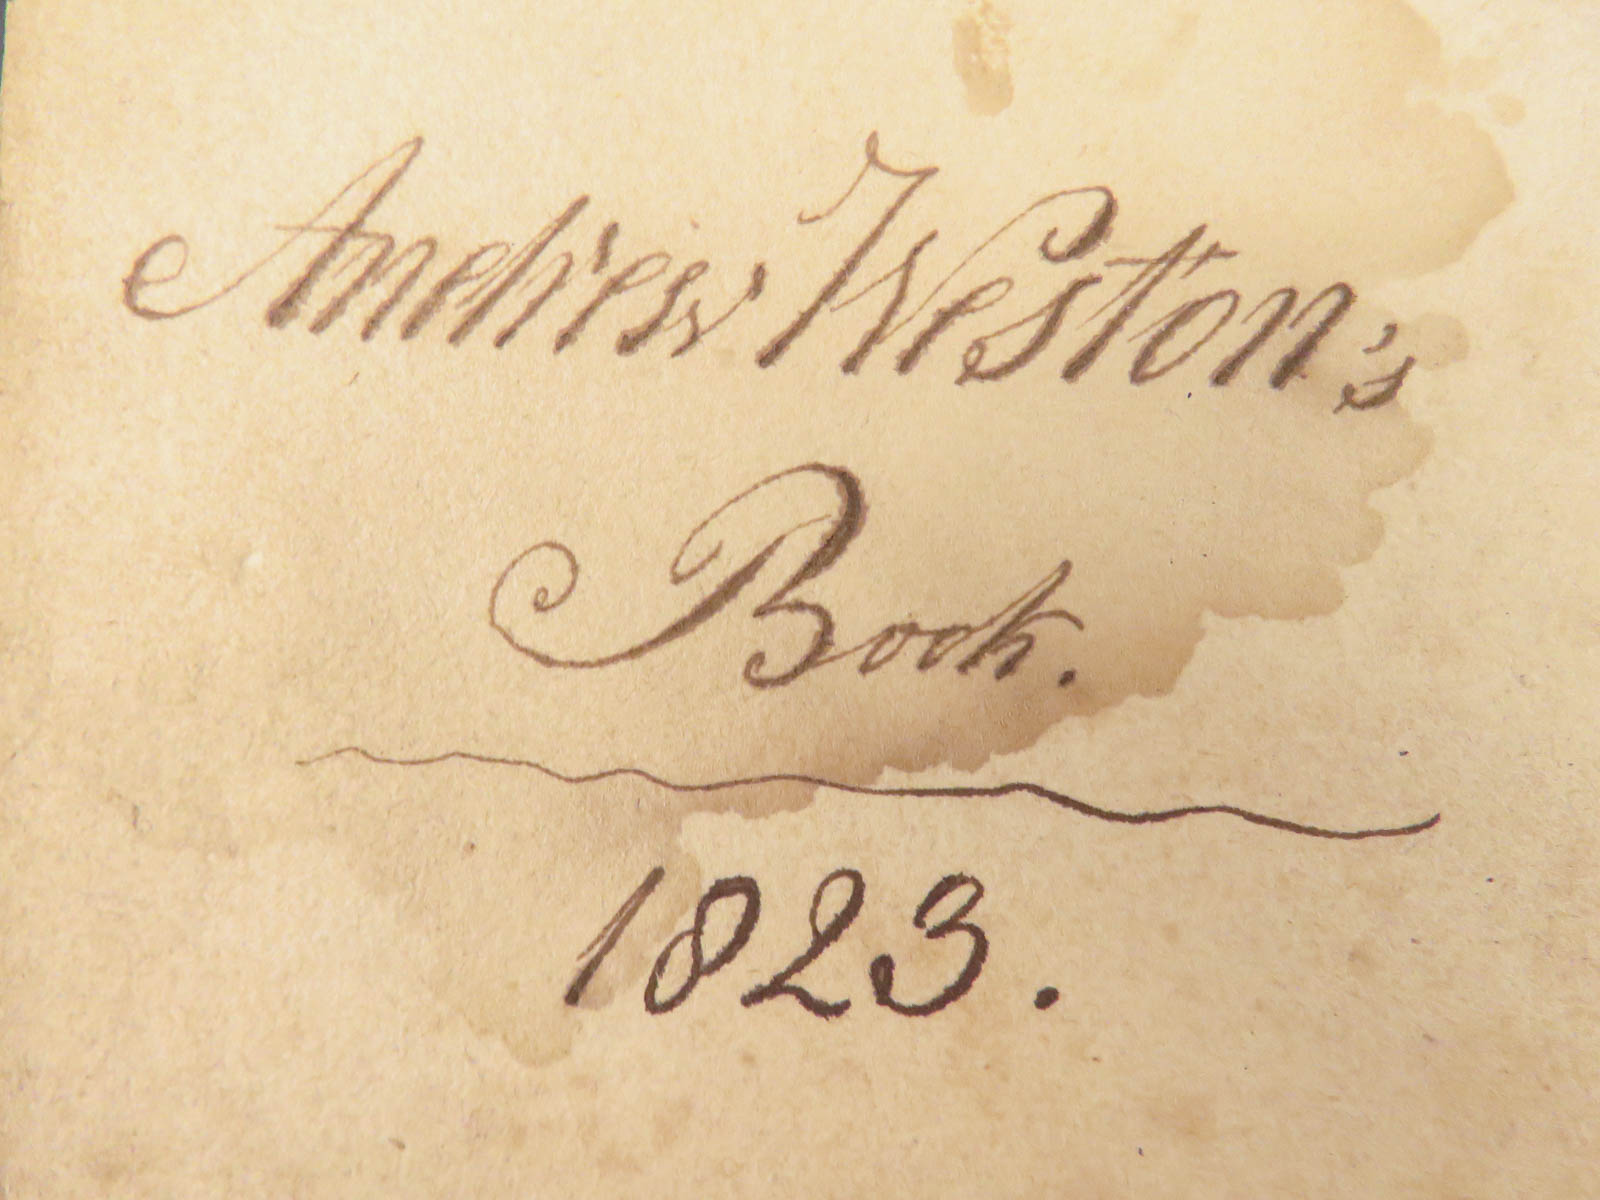 Andrew Weston's
Book.
1823.